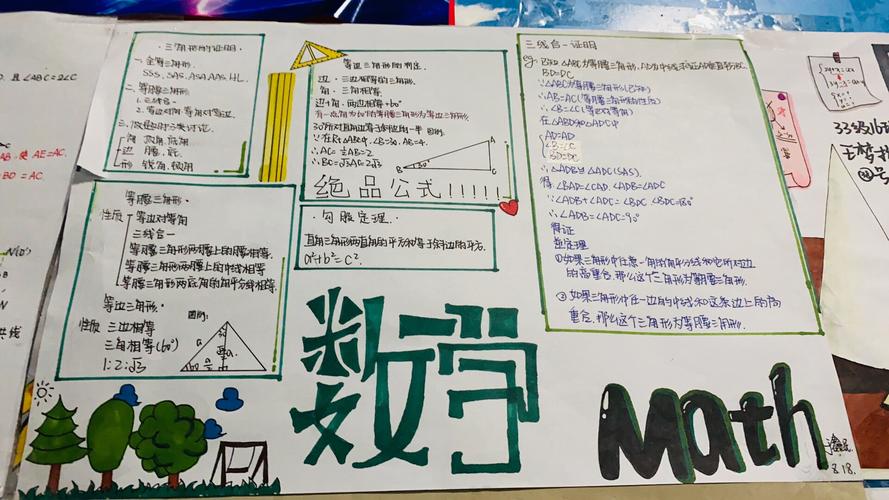 三角形的证明.
一. 全等三角形.
SSS, SAS, ASA, AAS, HL.
二. 等腰三角形
1. 三线合一
2. 等边对等角, 等角对等边.
角 顶角, 底角
边 腰, 底
形 锐角, 钝角
等边三角形的判定.
边: 三边相等的三角形.
角: 三角相等.
边+角: 两边相等+60°
有一个角为60°的等腰三角形为等边三角形.
30°所对直角边等于斜边的一半 图例:
∵在Rt△ABC中, ∠B=30, AB=4.
∴AC=½AB=2
∴BC=√3AC=2√3
A
B
30°
C
绝品公式!!!!!
等腰三角形.
性质 等边对等角
三线合一
等腰三角形两腰上的高相等.
等腰三角形两腰上的中线相等
等腰三角形两底角的角平分线相等.
等边三角形. 图例:
性质 三边相等
三角相等(60°)
1:2:√3
·勾股定理.
直角三角形两直角的平方和等于斜边的平方.
a²+b²=c².
三线合一证明
BD=DC
∵△ABC为等腰三角形(已知)
∴AB=AC(等腰三角形的性质)
∴∠B=∠C(等边对等角)
在△ABD和△ADC中
AD=AD
∠B=∠C
BD=DC
∴△ADB≌△ADC(SAS).
得∠BAD=∠CAD, ∠ADB=∠ADC
∴∠ADB=∠ADC=90°
得证
逆定理
①如果三角形中任意一角的角平分线和它所对边
的高重合,那么这个三角形为等腰三角形.
②如果三角形中任一边的中线和这条边上的高
重合,那么这个三角形为等腰三角形.
数学
Math
8.18.
且∠ABC=2∠C
AB, 使 AE=AC.
BD=AC.